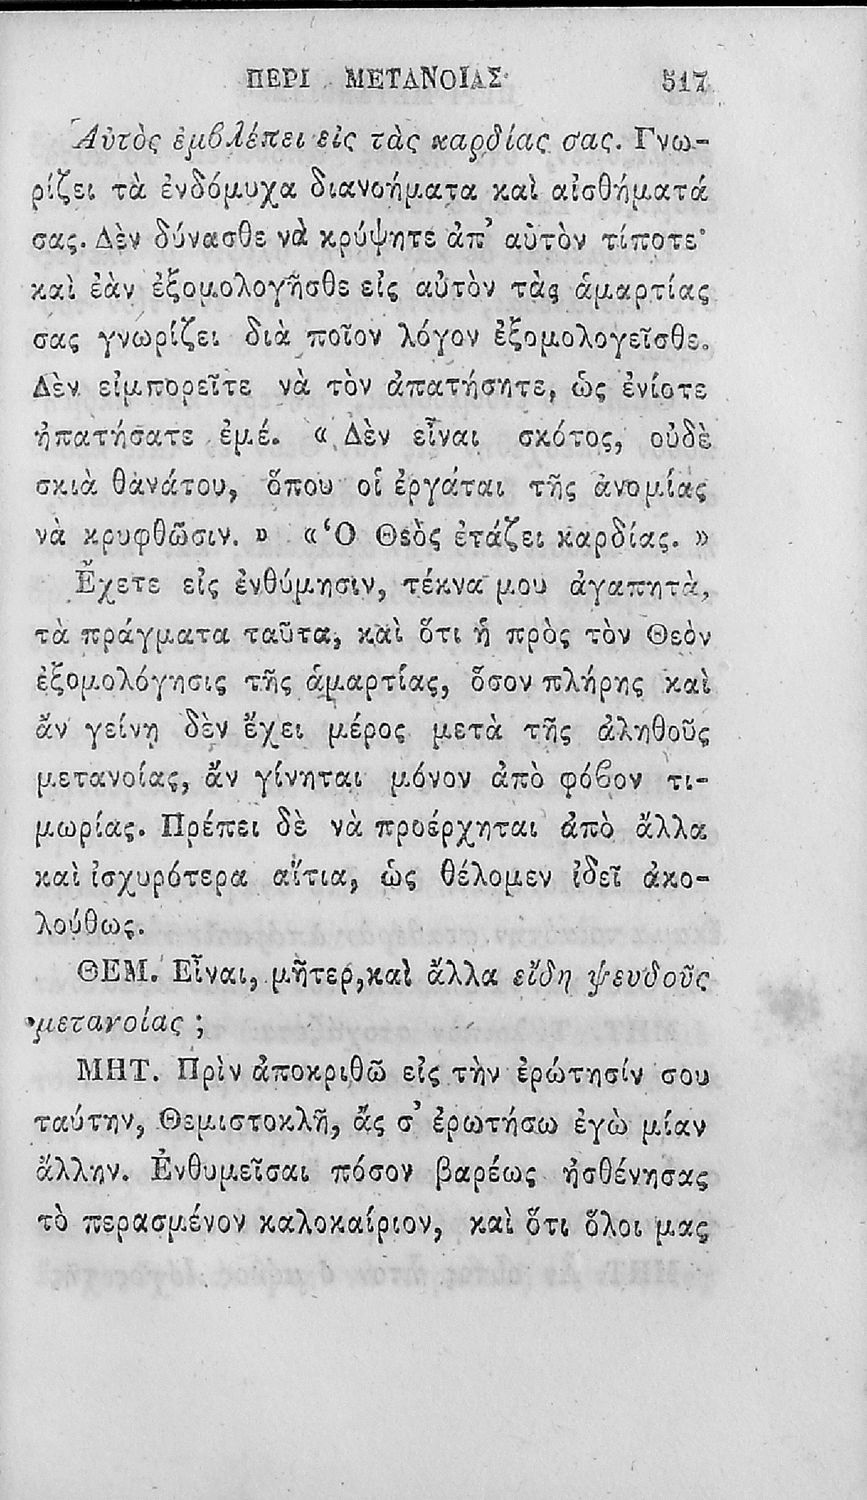 ΠΕΡΙ ΜΕΤΑΝΟΙΑΣ 517
Αὐτὸς ἐμβλέπει εἰς τὰς καρδίας σας. Γνω-
ρίζει τὰ ἐνδόμυχα διανοήματα καὶ αἰσθήματά
σας. Δὲν δύνασθε νὰ κρύψητε ἀπ’ αὐτὸν τίποτε·
καὶ ἐὰν ἐξομολογῆσθε εἰς αὐτὸν τὰς ἁμαρτίας
σας γνωρίζει διὰ ποῖον λόγον ἐξομολογεῖσθε.
Δὲν εἰμπορεῖτε νὰ τὸν ἀπατήσητε, ὡς ἐνίοτε
ἠπατήσατε ἐμέ. « Δὲν εἶναι σκότος, οὐδὲ
σκιὰ θανάτου, ὅπου οἱ ἐργάται τῆς ἀνομίας
νὰ κρυφθῶσιν. » «Ὁ Θεὸς ἐτάζει καρδίας. »
Ἔχετε εἰς ἐνθύμησιν, τέκνα μου ἀγαπητὰ,
τὰ πράγματα ταῦτα, καὶ ὅτι ἡ πρὸς τὸν Θεὸν
ἐξομολόγησις τῆς ἁμαρτίας, ὅσον πλήρης καὶ
ἄν γείνῃ δὲν ἔχει μέρος μετὰ τῆς ἀληθοῦς
μετανοίας, ἄν γίνηται μόνον ἀπὸ φόβον τι-
μωρίας. Πρέπει δὲ νὰ προέρχηται ἀπὸ ἄλλα
καὶ ἰσχυρότερα αἴτια, ὡς θέλομεν ἰδεῖ ἀκο-
λούθως.
ΘΕΜ. Εἶναι, μῆτερ, καὶ ἄλλα εἴδη ψευδοῦς
μετανοίας ;
ΜΗΤ. Πρὶν ἀποκριθῶ εἰς τὴν ἐρώτησίν σου
ταύτην, Θεμιστοκλῆ, ἄς σ’ ἐρωτήσω ἐγὼ μίαν
ἄλλην. Ἐνθυμεῖσαι πόσον βαρέως ἠσθένησας
τὸ περασμένον καλοκαίριον, καὶ ὅτι ὅλοι μας